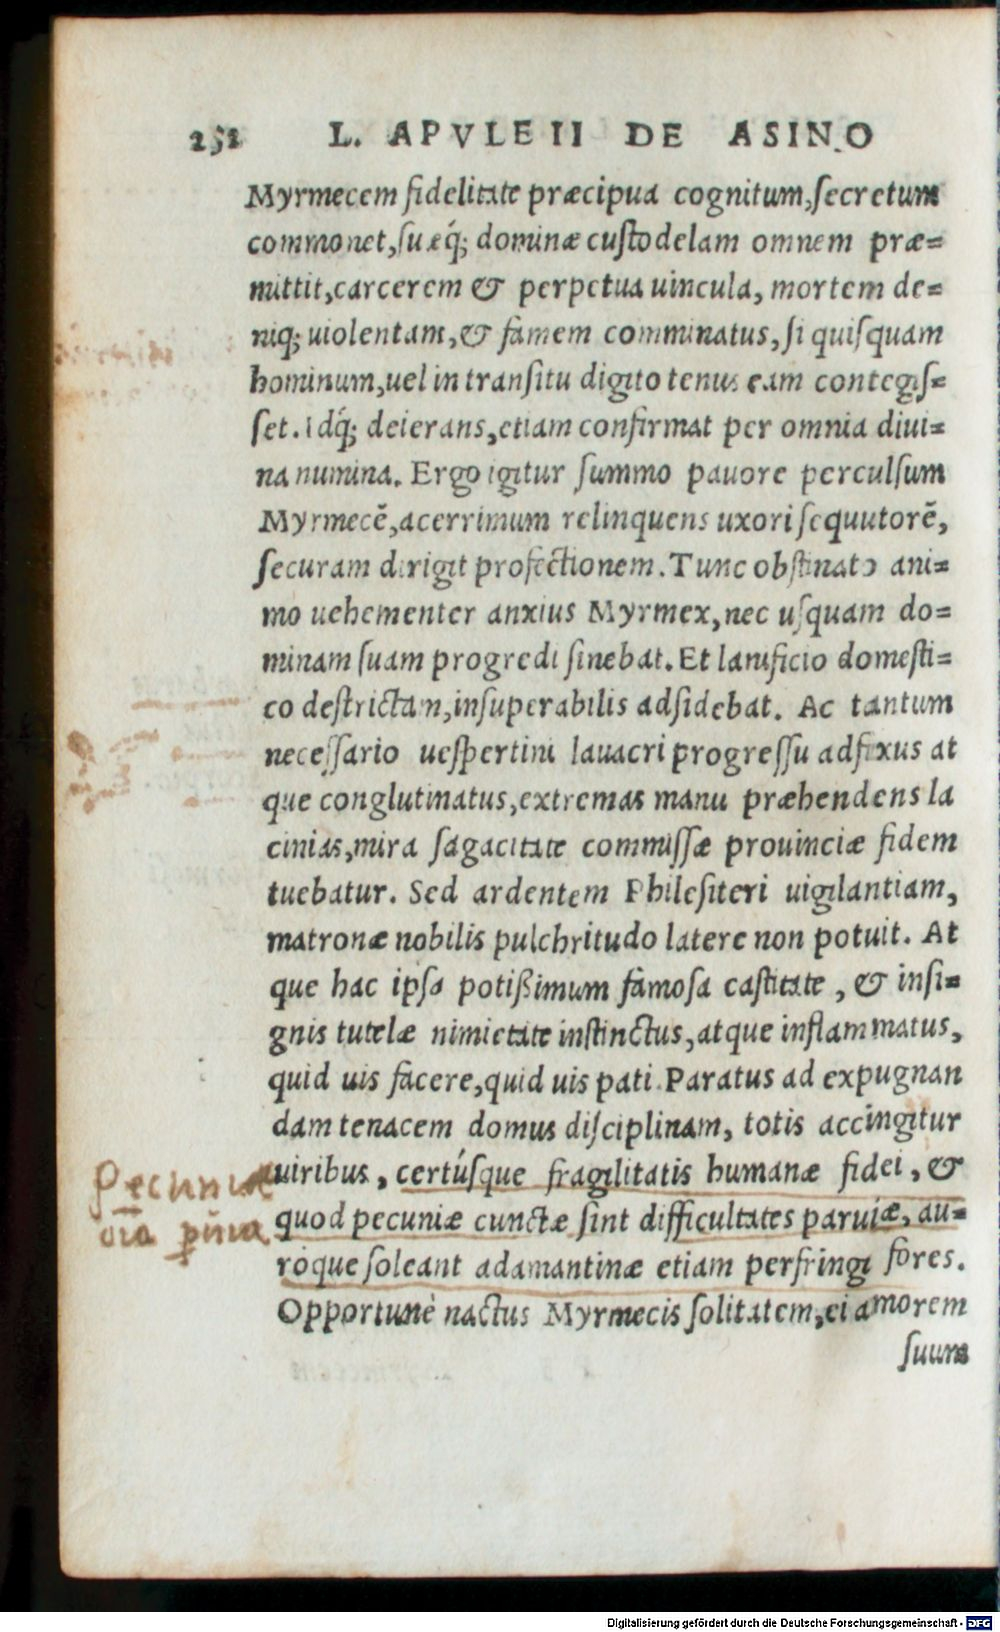 252 L. APVLEII DE ASINO
Myrmecem fidelitate præcipua cognitum,ſecretum
commonet,ſuæq́; dominæ cuſtodelam omnem præ=
mittit,carcerem & perpetua uincula, mortem de=
niq; uiolentam,& famem comminatus, ſi quiſquam
hominum,uel in tranſitu digito tenus eam contegiſ=
ſet. Idq́; deierans,etiam confirmat per omnia diui=
na numina. Ergo igitur ſummo pauore perculſum
Myrmecē,acerrimum relinquens uxori ſequutorē,
ſecuram dirigit profectionem. Tunc obſtinato ani=
mo uehementer anxius Myrmex,nec uſquam do=
minam ſuam progredi ſinebat. Et lanificio domeſti=
co deſtrictam,inſuperabilis adſidebat. Ac tantum
neceſſario ueſpertini lauacri progreſſu adfixus at
que conglutinatus,extremas manu præhendens la
cinias,mira ſagacitate commiſſæ prouinciæ fidem
tuebatur. Sed ardentem Phileſiteri uigilantiam,
matronæ nobilis pulchritudo latere non potuit. At
que hac ipſa potißimum famoſa caſtitate , & inſi=
gnis tutelæ nimietate inſtinctus,atque inflammatus,
quid uis facere,quid uis pati. Paratus ad expugnan
dam tenacem domus diſciplinam, totis accingitur
uiribus , certúsque fragilitatis humanæ fidei , &
quod pecuniæ cunctæ ſint difficultates peruiæ, au=
róque ſoleant adamantinæ etiam perfringi fores.
Opportunè nactus Myrmecis ſolitatem,ei amorem
ſuum
Pecuniæ
oīa puia
Digitalisierung gefördert durch die Deutsche Forschungsgemeinschaft - DFG